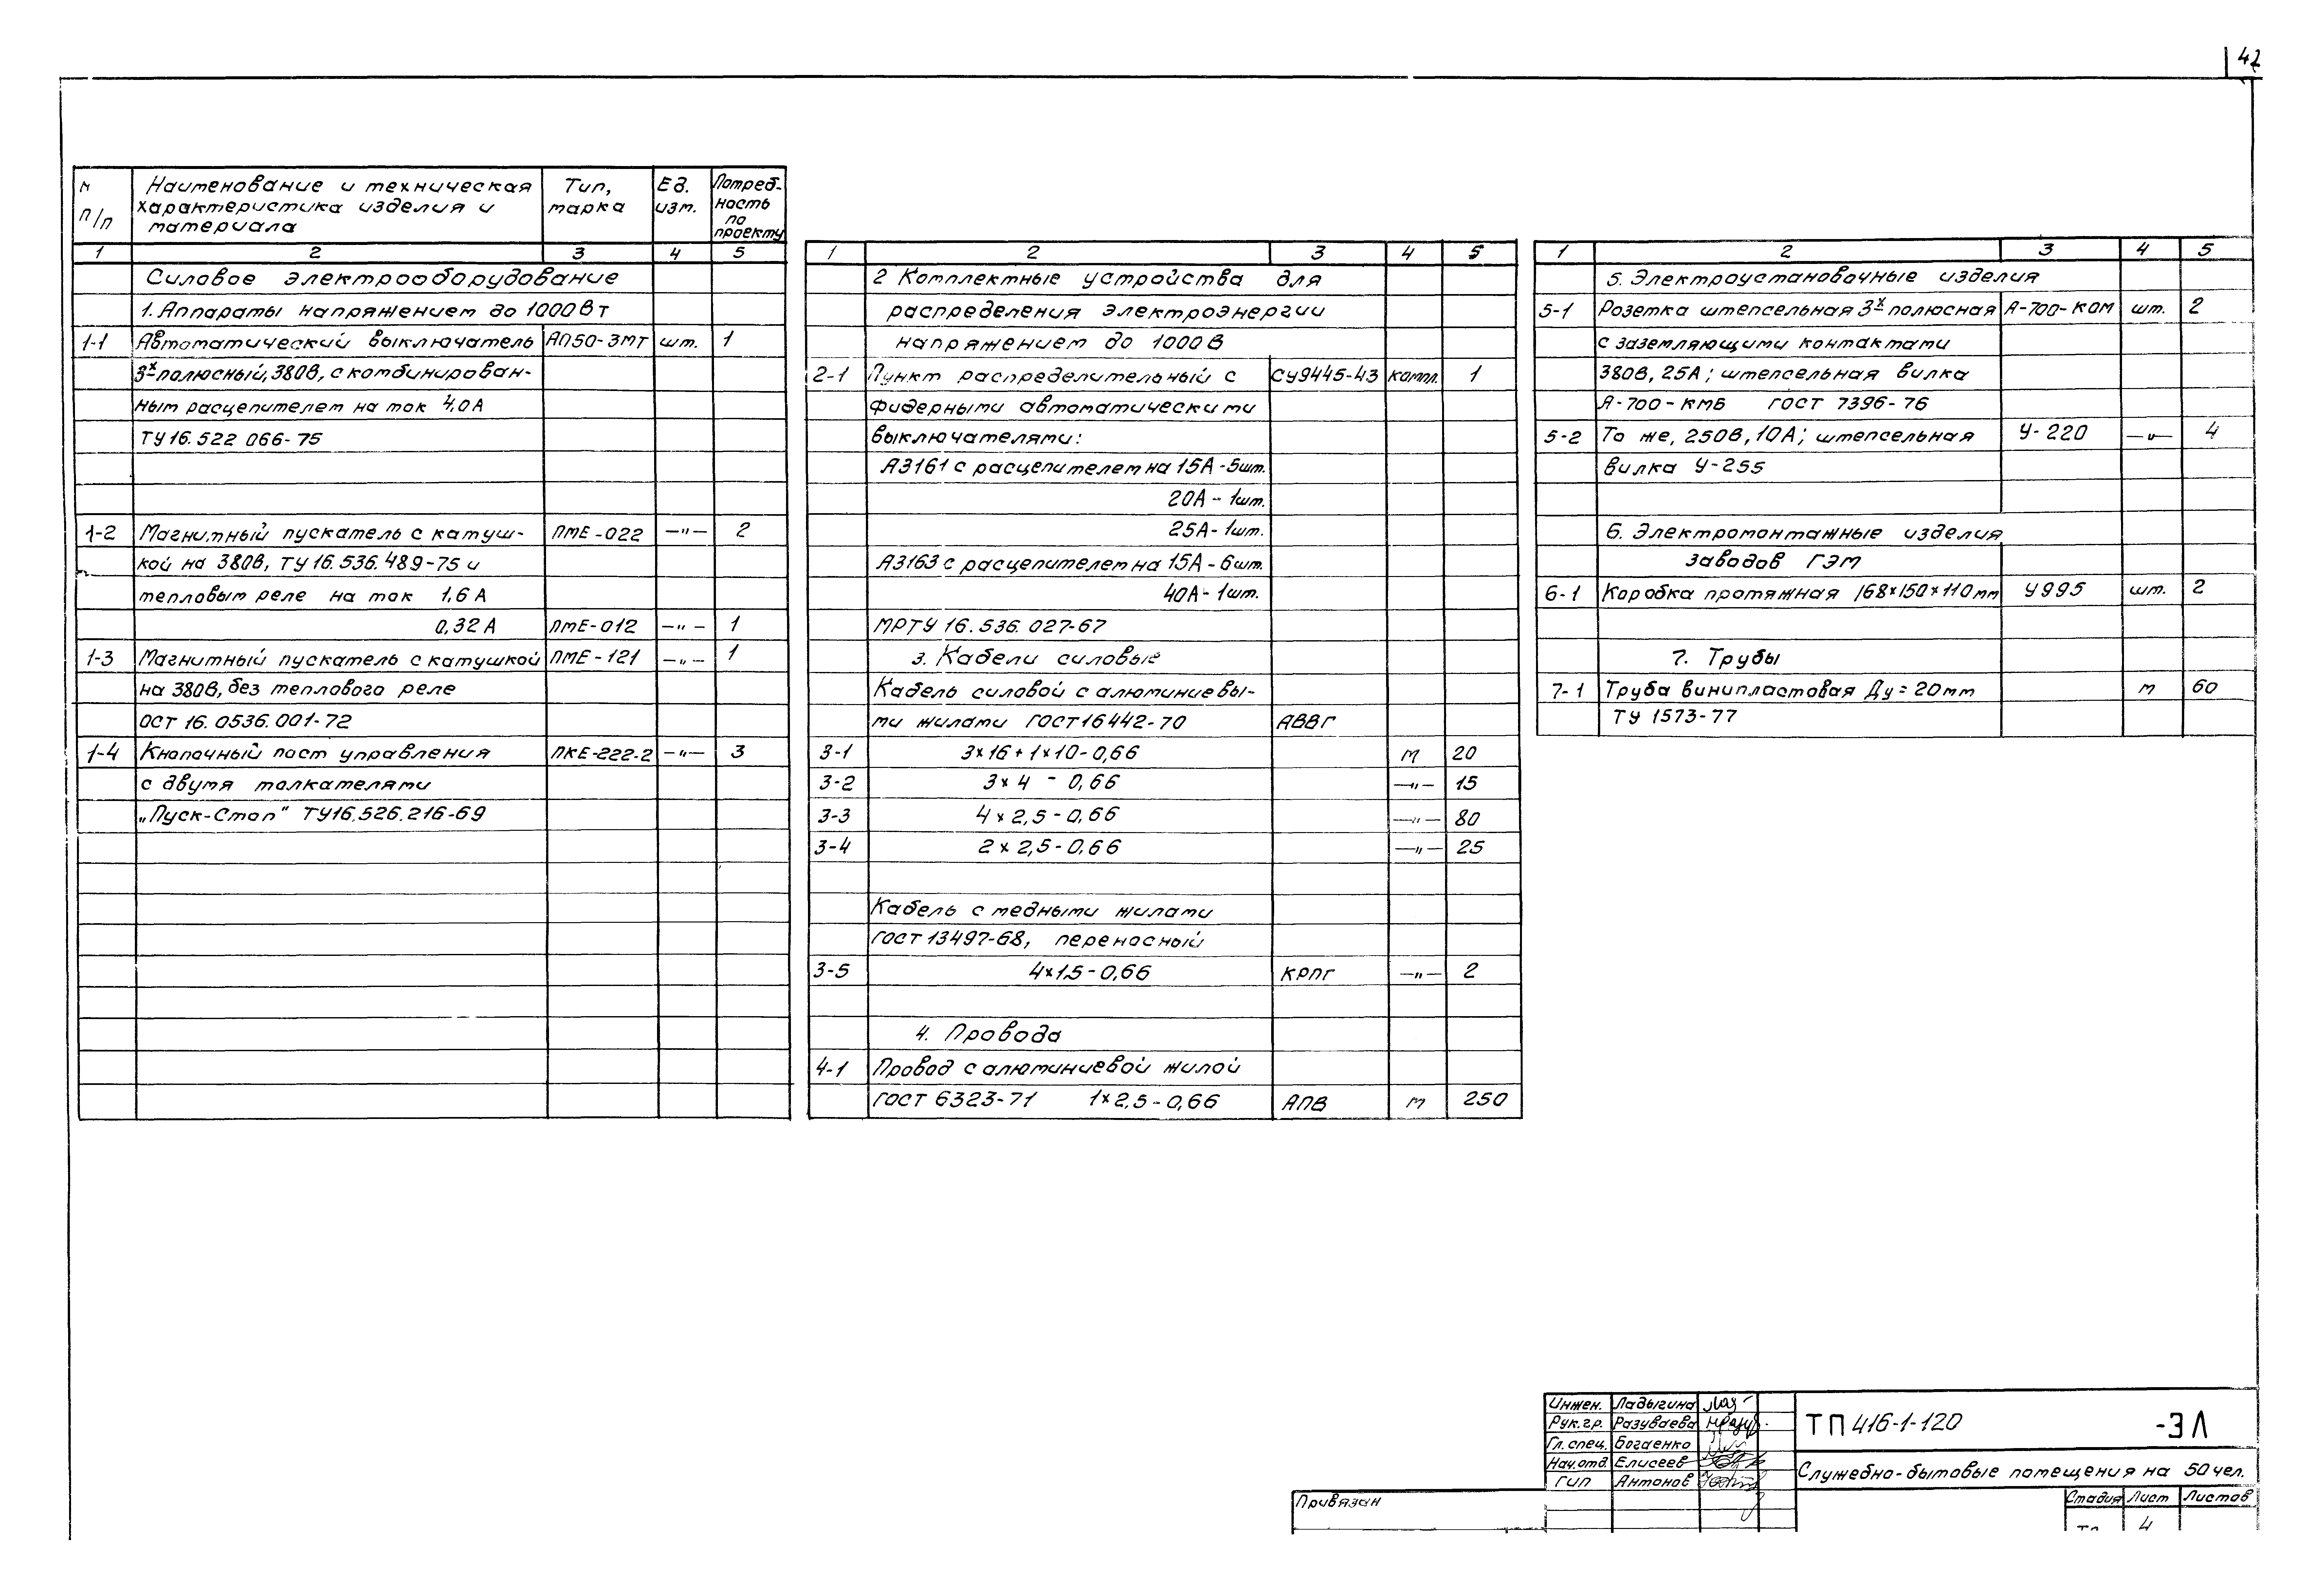 42
N п/п | Наименование и техническая характеристика изделия и материала | Тип, марка | Ед. изм. | Потреб-ность по проекту
1 2 3 4 5
Силовое электрооборудование
1. Аппараты напряжением до 1000Вт
1-1 Автоматический выключатель АП50-3МТ шт. 1
3х полюсный, 380В, с комбинирован-
ным расцепителем на ток 4,0А
ТУ16.522 066-75
1-2 Магнитный пускатель с катуш- ПМЕ-022 —"— 2
кой на 380В, ТУ16.536.489-75 и
тепловым реле на ток 1,6 А
0,32 А ПМЕ-012 —"— 1
1-3 Магнитный пускатель с катушкой ПМЕ-121 —"— 1
на 380В, без теплового реле
ОСТ 16. 0536.001-72
1-4 Кнопочный пост управления ПКЕ-222-2 —"— 3
с двумя толкателями
„Пуск-Стоп" ТУ16.526.216-69
1 2 3 4 5
2 Комплектные устройства для
распределения электроэнергии
напряжением до 1000В
2-1 Пункт распределительный с СУ9445-43 компл. 1
фидерными автоматическими
выключателями:
А3161 с расцепителем на 15А-5шт.
20А-1шт.
25А-1шт.
А3163 с расцепителем на 15А-6шт.
40А-1шт.
МРТУ 16.536.027-67
3. Кабели силовые
Кабель силовой с алюминиевы-
ми жилами ГОСТ16442-70 АВВГ
3-1 3×16+1×10-0,66 м 20
3-2 3×4 - 0,66 —"— 15
3-3 4×2,5-0,66 —"— 80
3-4 2×2,5-0,66 —"— 25
Кабель с медными жилами
ГОСТ 13497-68, переносный
3-5 4×1,5-0,66 КРПГ —"— 2
4. Провода
4-1 Провод с алюминиевой жилой
ГОСТ 6323-71 1×2,5-0,66 АПВ м 250
1 2 3 4 5
5. Электроустановочные изделия
5-1 Розетка штепсельная 3х полюсная А-700-КОМ шт. 2
с заземляющими контактами
380В, 25А; штепсельная вилка
А-700-КМБ ГОСТ 7396-76
5-2 То же, 250В, 10А; штепсельная У-220 —"— 4
вилка У-255
6. Электромонтажные изделия
заводов ГЭМ
6-1 Коробка протяжная 168×150×110мм У995 шт. 2
7. Трубы
7-1 Труба винипластовая Ду=20мм м 60
ТУ 1573-77
Инжен. Ладыгина
Рук.гр. Разуваева
Гл.спец. Богаенко
Нач.отд. Елисеев
ГИП Антонов
ТП 416-1-120 -ЭЛ
Служебно-бытовые помещения на 50 чел.
Привязан
Стадия Лист Листов
4